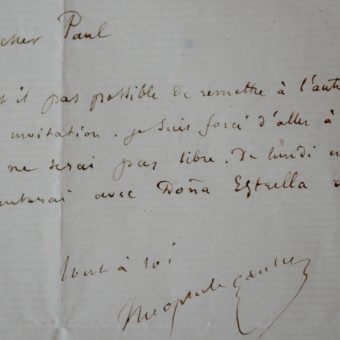 cher Paul
il pas possible de remettre à l'aut
invitation. je suis forcé d'aller à
ne serai pas libre. De lundi
avec Doña Estrella
tout à toi